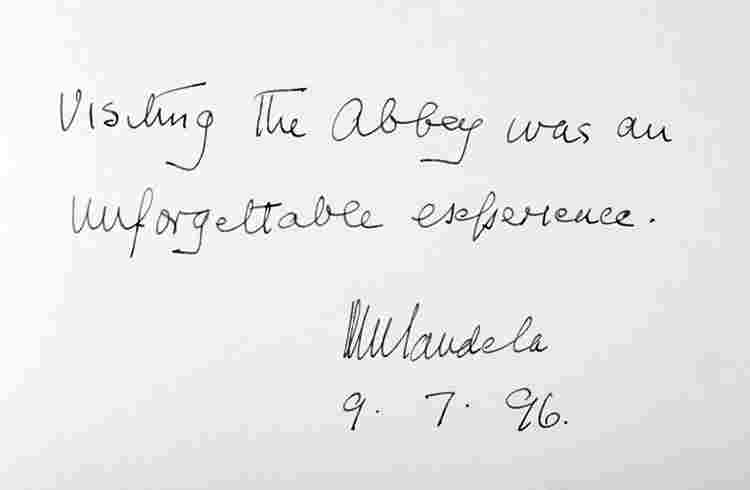 Visiting the Abbey was an
unforgettable experience.
NMandela
9. 7. 96.